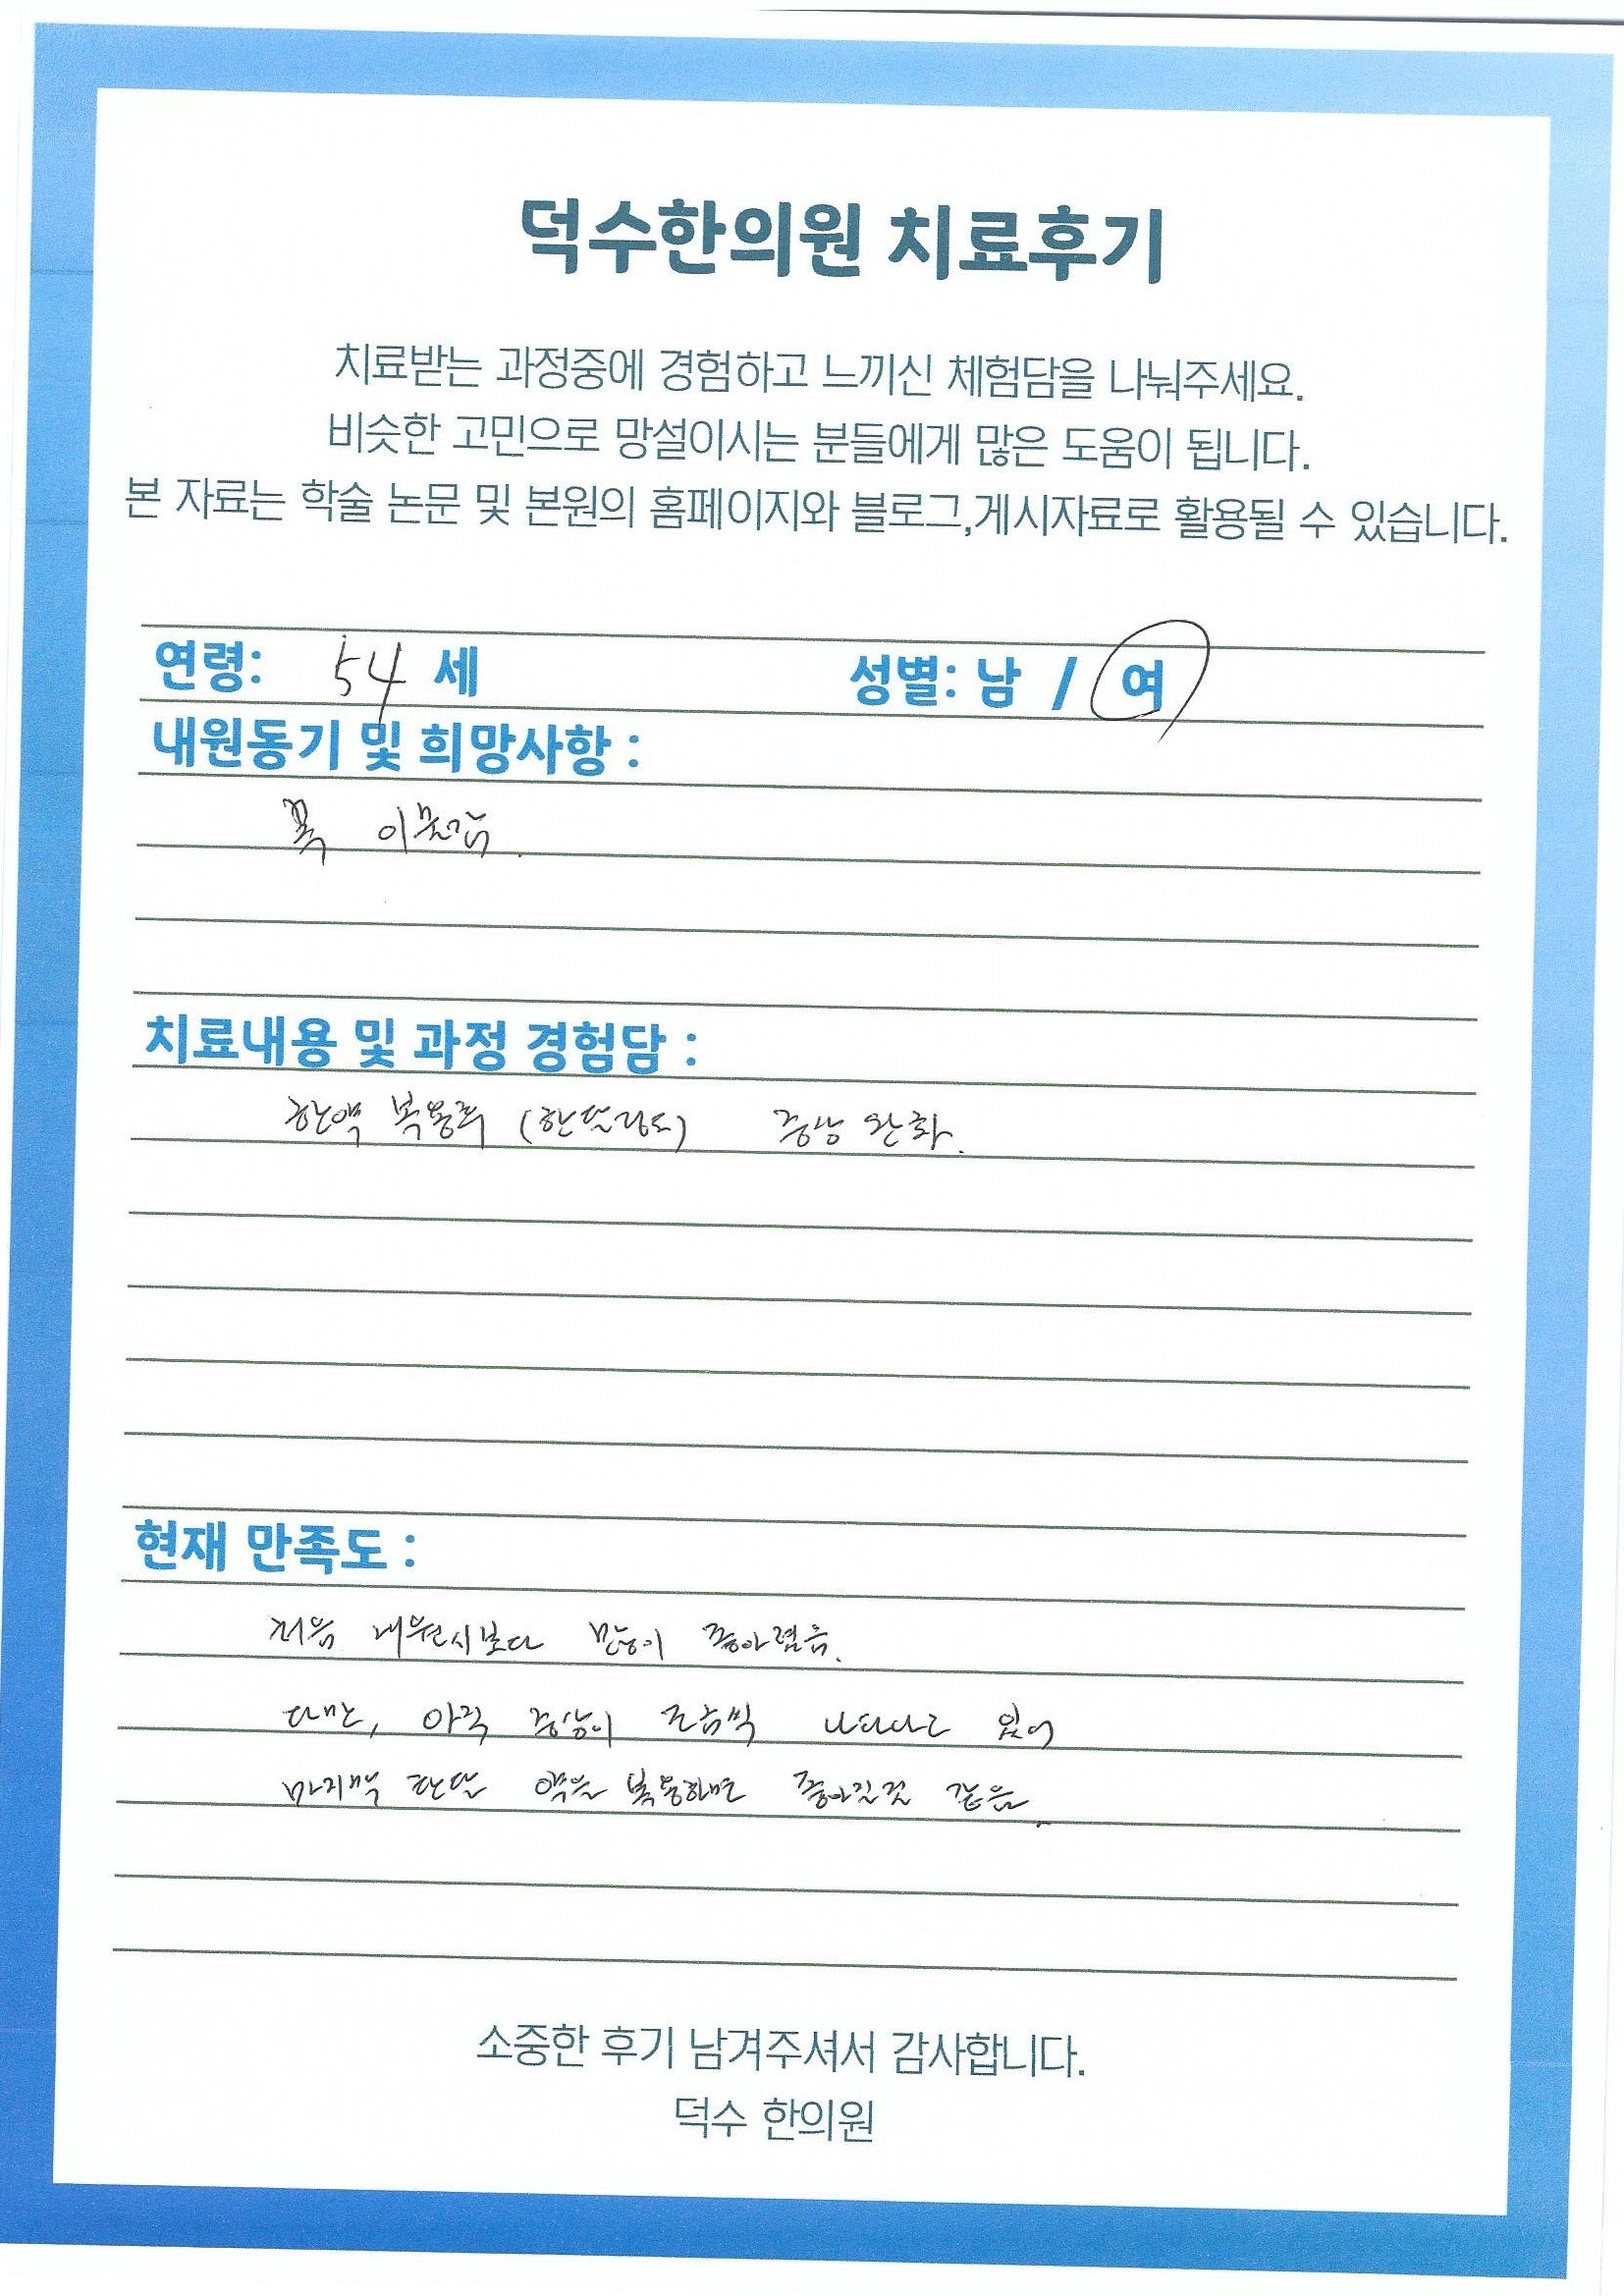 덕수한의원 치료후기
치료받는 과정중에 경험하고 느끼신 체험담을 나눠주세요.
비슷한 고민으로 망설이시는 분들에게 많은 도움이 됩니다.
본 자료는 학술 논문 및 본원의 홈페이지와 블로그,게시자료로 활용될 수 있습니다.
연령: 54 세 성별: 남 / 여
내원동기 및 희망사항 :
목 이물감.
치료내용 및 과정 경험담 :
한약 복용후 (한달정도) 증상 완화.
현재 만족도 :
처음 내원시보다 많이 좋아졌음.
다만, 아직 증상이 조금씩 나타나고 있어
마지막 한달 약을 복용하면 좋아질것 같음.
소중한 후기 남겨주셔서 감사합니다.
덕수 한의원